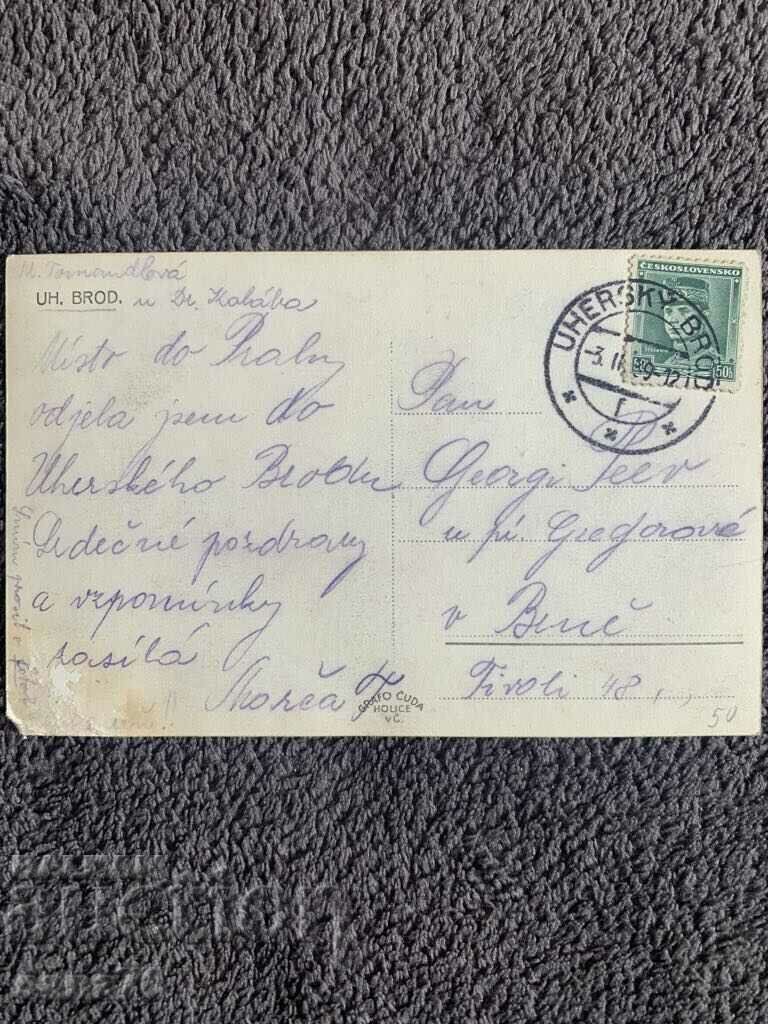 M. Tomandlová
UH. BROD. u Dr. Kalába
Místo do Prahy
odjela jsem do
Uherského Brodu
Srdečné pozdravy
a vzpomínky
zasílá
Marča T.
GRAFO ČUDA
HOLICE
V Č.
ČESKOSLOVENSKO
50h 50h
UHERSKÝ BROD
Pan
Georgi Peev
u pí. Gregorové
v Brně
Tivoli 48,
50
auction